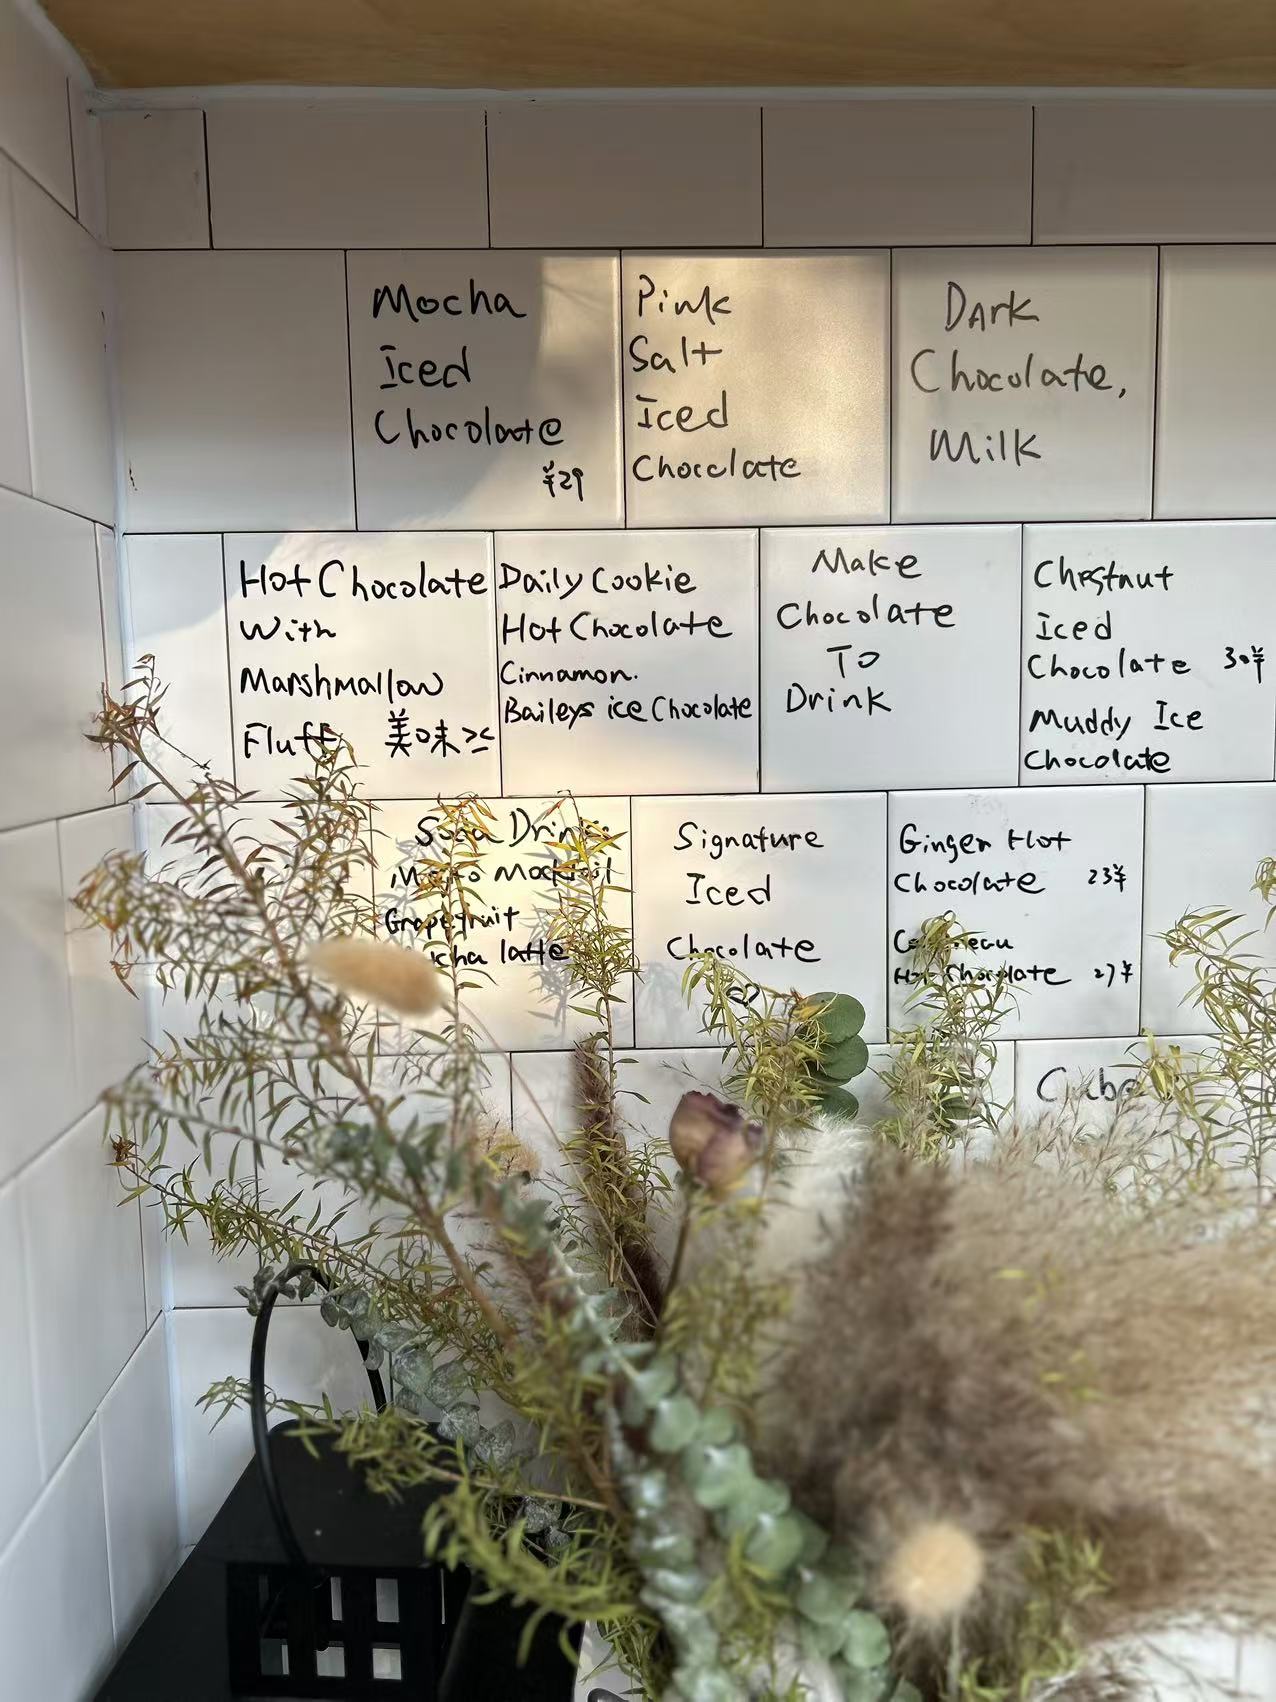 Mocha
Iced
Chocolate
¥29
Pink
Salt
Iced
Chocolate
Dark
Chocolate,
Milk
Hot Chocolate
With
Marshmallow
Fluff 美味><
Daily Cookie
Hot Chocolate
Cinnamon.
Baileys ice Chocolate
Make
Chocolate
To
Drink
Chestnut
Iced
Chocolate 30¥
Muddy Ice
Chocolate
Soda Drinks
Mocktail
Grapefruit
latte
Signature
Iced
Chocolate
♡
Ginger Hot
Chocolate 23¥
Hot Chocolate 27¥